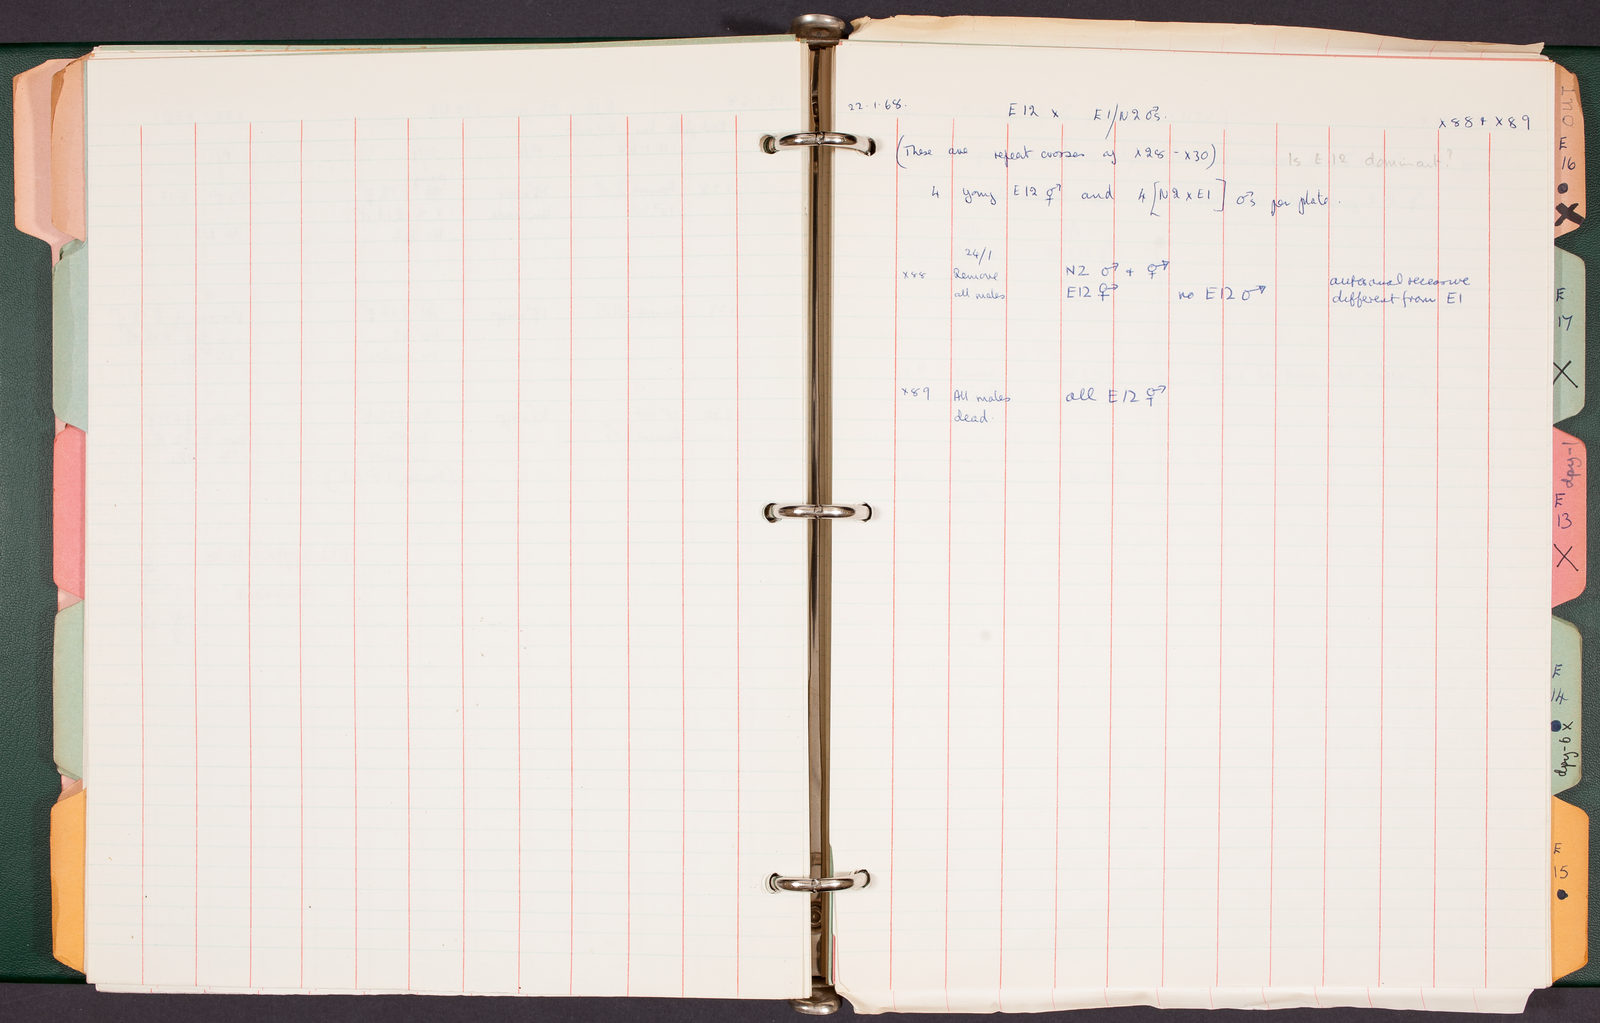 22.1.68.
E12 x E1/N2 ♂s.
x88 + x89
(These are repeat crosses of x28 - x30)
Is E12 dominant?
4 young E12 ⚥ and 4 [N2 x E1] ♂s per plate.
24/1
x88 Remove all males
N2 ♂ + ⚥
E12 ⚥ no E12 ♂
autosomal recessive
different from E1
x89 All males all E12 ⚥
dead.
E
16
X
E
17
X
dpy-1
E
13
X
E
14
dpy-6 X
E
15